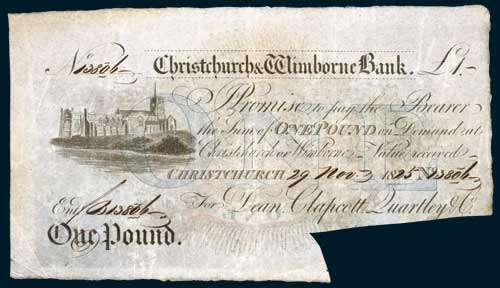 No 13806 Christchurch & Wimborne Bank. £1.
I Promise to pay the Bearer
the Sum of ONE POUND on Demand at
Christchurch or Wimborne Value received
CHRISTCHURCH 29 Nov. 1825 No 13806
Entd 13806 For Dean, Clapcott, Quartley & Co.
One Pound.